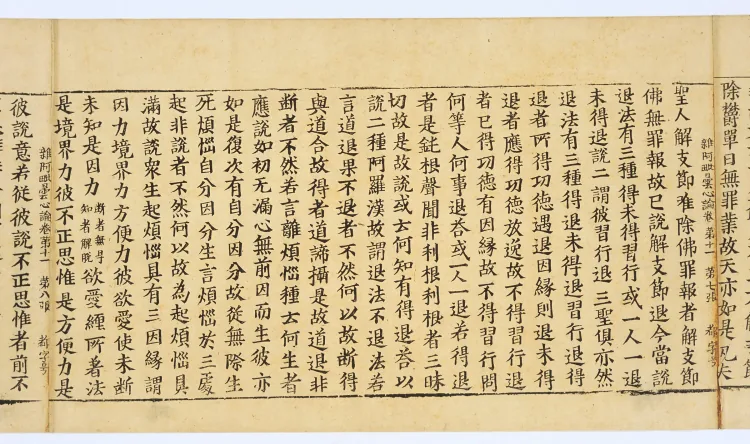 除欝單曰無罪業故天亦如是凡夫
雜阿毗曇心論卷第十一 第七張
聖人解支節難除佛罪報者解支節
佛無罪報故已說解支節退今當說
退法有三種得未得習行或一人一退
未得退說二謂彼習行退三聖俱亦然
退法有三種得退未得退習行退得
退者所得功德遇退因緣則退未得
退者應得功德放逸故不得習行退
者已得功德有因緣故不得習行問
何等人何事退答或一人一退若得退
者是鈍根聲聞非利根利根者三昧
切故是故說或士何知有得退答以
說二種阿羅漢故謂退法不退法若
言道退果不退者不然何以故斷得
與道合故得者道諦攝是故道退非
斷者不然若言離煩惱種士何生者
應說如初無漏心無前因而生彼亦
如是復次有自分因分故從無際生
死煩惱自分因分生言煩惱於三處
起非說者不然何以故為起煩惱具
滿故說衆生起煩惱具有三因緣謂
因力境界力方便力彼欲愛使未斷
未知是因力斷者無㝵知者解脫欲愛纏所著法
是境界力彼不正思惟是方便力是
雜阿毗曇心論卷第十一 第八張
彼說意若從彼說不正思惟者前不